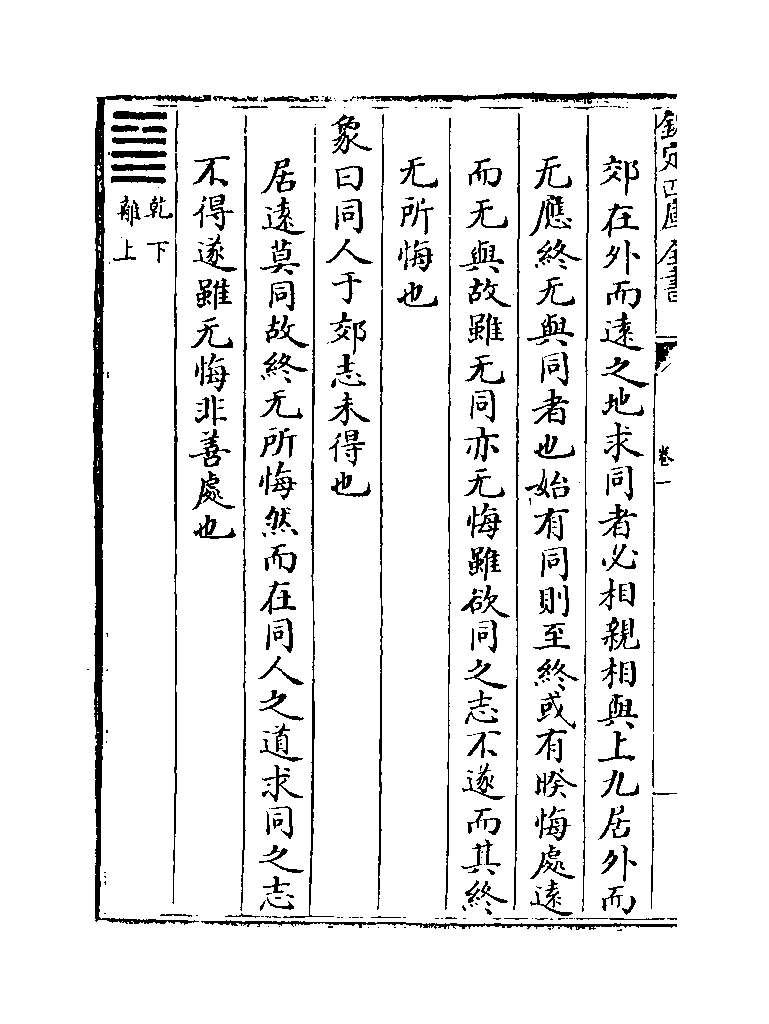 欽定四庫全書
卷一
郊在外而遠之地求同者必相親相與上九居外而
无應終无與同者也始有同則至終或有睽悔處遠
而无與故雖无同亦无悔雖欲同之志不遂而其終
无所悔也
象曰同人于郊志未得也
居遠莫同故終无所悔然而在同人之道求同之志
不得遂雖无悔非善處也
乾下
離上